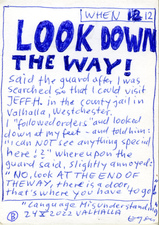 WHEN 12 12
LOOK DOWN
THE WAY!
Said the guard after I was
searched so that I could visit
JEFFH. in the county gail in
Valhalla, Westchester.
I "followed orders" and looked
down at my feet - and told him:
"I can NOT see anything special
here!" whereupon the
guard said, slightly annoyed:
"NO, LOOK AT THE END OF
THE WAY, there is a door,
that's where you have to go"
Language Misunderstanding
24 2022 VALHALLA